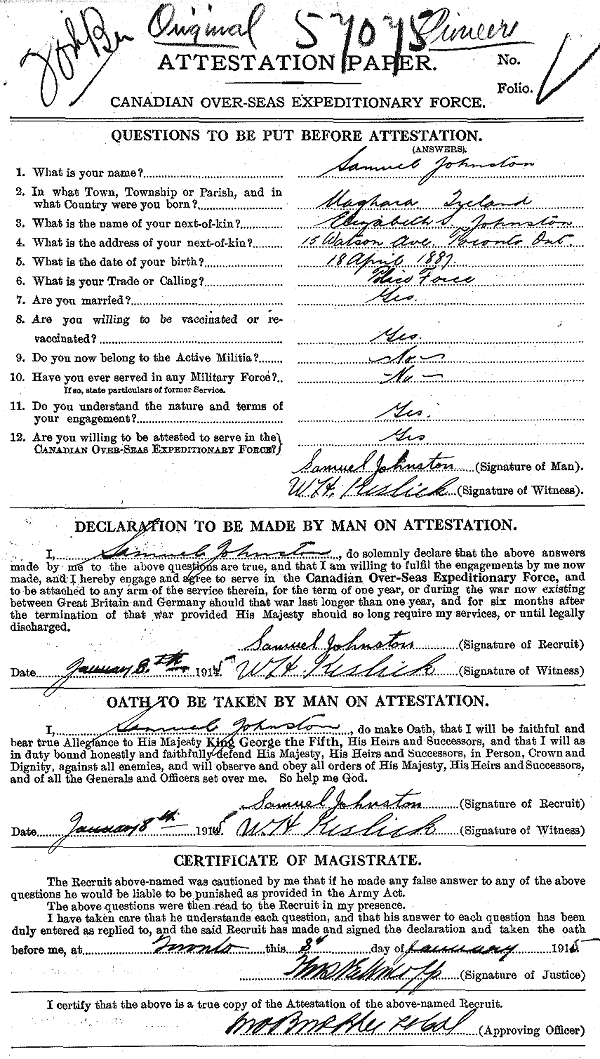 Original 57075 Pioneers
ATTESTATION PAPER. No.
Folio.
CANADIAN OVER-SEAS EXPEDITIONARY FORCE.
QUESTIONS TO BE PUT BEFORE ATTESTATION.
(ANSWERS).
1. What is your name? Samuel Johnston
2. In what Town, Township or Parish, and in
what Country were you born? Maghara Ireland
3. What is the name of your next-of-kin? Elizabeth S. Johnston
4. What is the address of your next-of-kin? 15 Watson Ave. Toronto Ont.
5. What is the date of your birth? 18 April 1887
6. What is your Trade or Calling? Police Force
7. Are you married? Yes.
8. Are you willing to be vaccinated or re-
vaccinated? Yes.
9. Do you now belong to the Active Militia? No
10. Have you ever served in any Military Force? No
If so, state particulars of former Service.
11. Do you understand the nature and terms of
your engagement? Yes.
12. Are you willing to be attested to serve in the
CANADIAN OVER-SEAS EXPEDITIONARY FORCE? Yes
Samuel Johnston (Signature of Man).
W.H. Kislick (Signature of Witness).
DECLARATION TO BE MADE BY MAN ON ATTESTATION.
I, Samuel Johnston, do solemnly declare that the above answers
made by me to the above questions are true, and that I am willing to fulfil the engagements by me now
made, and I hereby engage and agree to serve in the Canadian Over-Seas Expeditionary Force, and
to be attached to any arm of the service therein, for the term of one year, or during the war now existing
between Great Britain and Germany should that war last longer than one year, and for six months after
the termination of that war provided His Majesty should so long require my services, or until legally
discharged.
Samuel Johnston (Signature of Recruit)
Date January 8th 1915 W H Kislick (Signature of Witness)
OATH TO BE TAKEN BY MAN ON ATTESTATION.
I, Samuel Johnston, do make Oath, that I will be faithful and
bear true Allegiance to His Majesty King George the Fifth, His Heirs and Successors, and that I will as
in duty bound honestly and faithfully defend His Majesty, His Heirs and Successors, in Person, Crown and
Dignity, against all enemies, and will observe and obey all orders of His Majesty, His Heirs and Successors,
and of all the Generals and Officers set over me. So help me God.
Samuel Johnston (Signature of Recruit)
Date January 8th 1915 W.H Kislick (Signature of Witness)
CERTIFICATE OF MAGISTRATE.
The Recruit above-named was cautioned by me that if he made any false answer to any of the above
questions he would be liable to be punished as provided in the Army Act.
The above questions were then read to the Recruit in my presence.
I have taken care that he understands each question, and that his answer to each question has been
duly entered as replied to, and the said Recruit has made and signed the declaration and taken the oath
before me, at Toronto this day of January 1915
(Signature of Justice)
I certify that the above is a true copy of the Attestation of the above-named Recruit.
(Approving Officer)